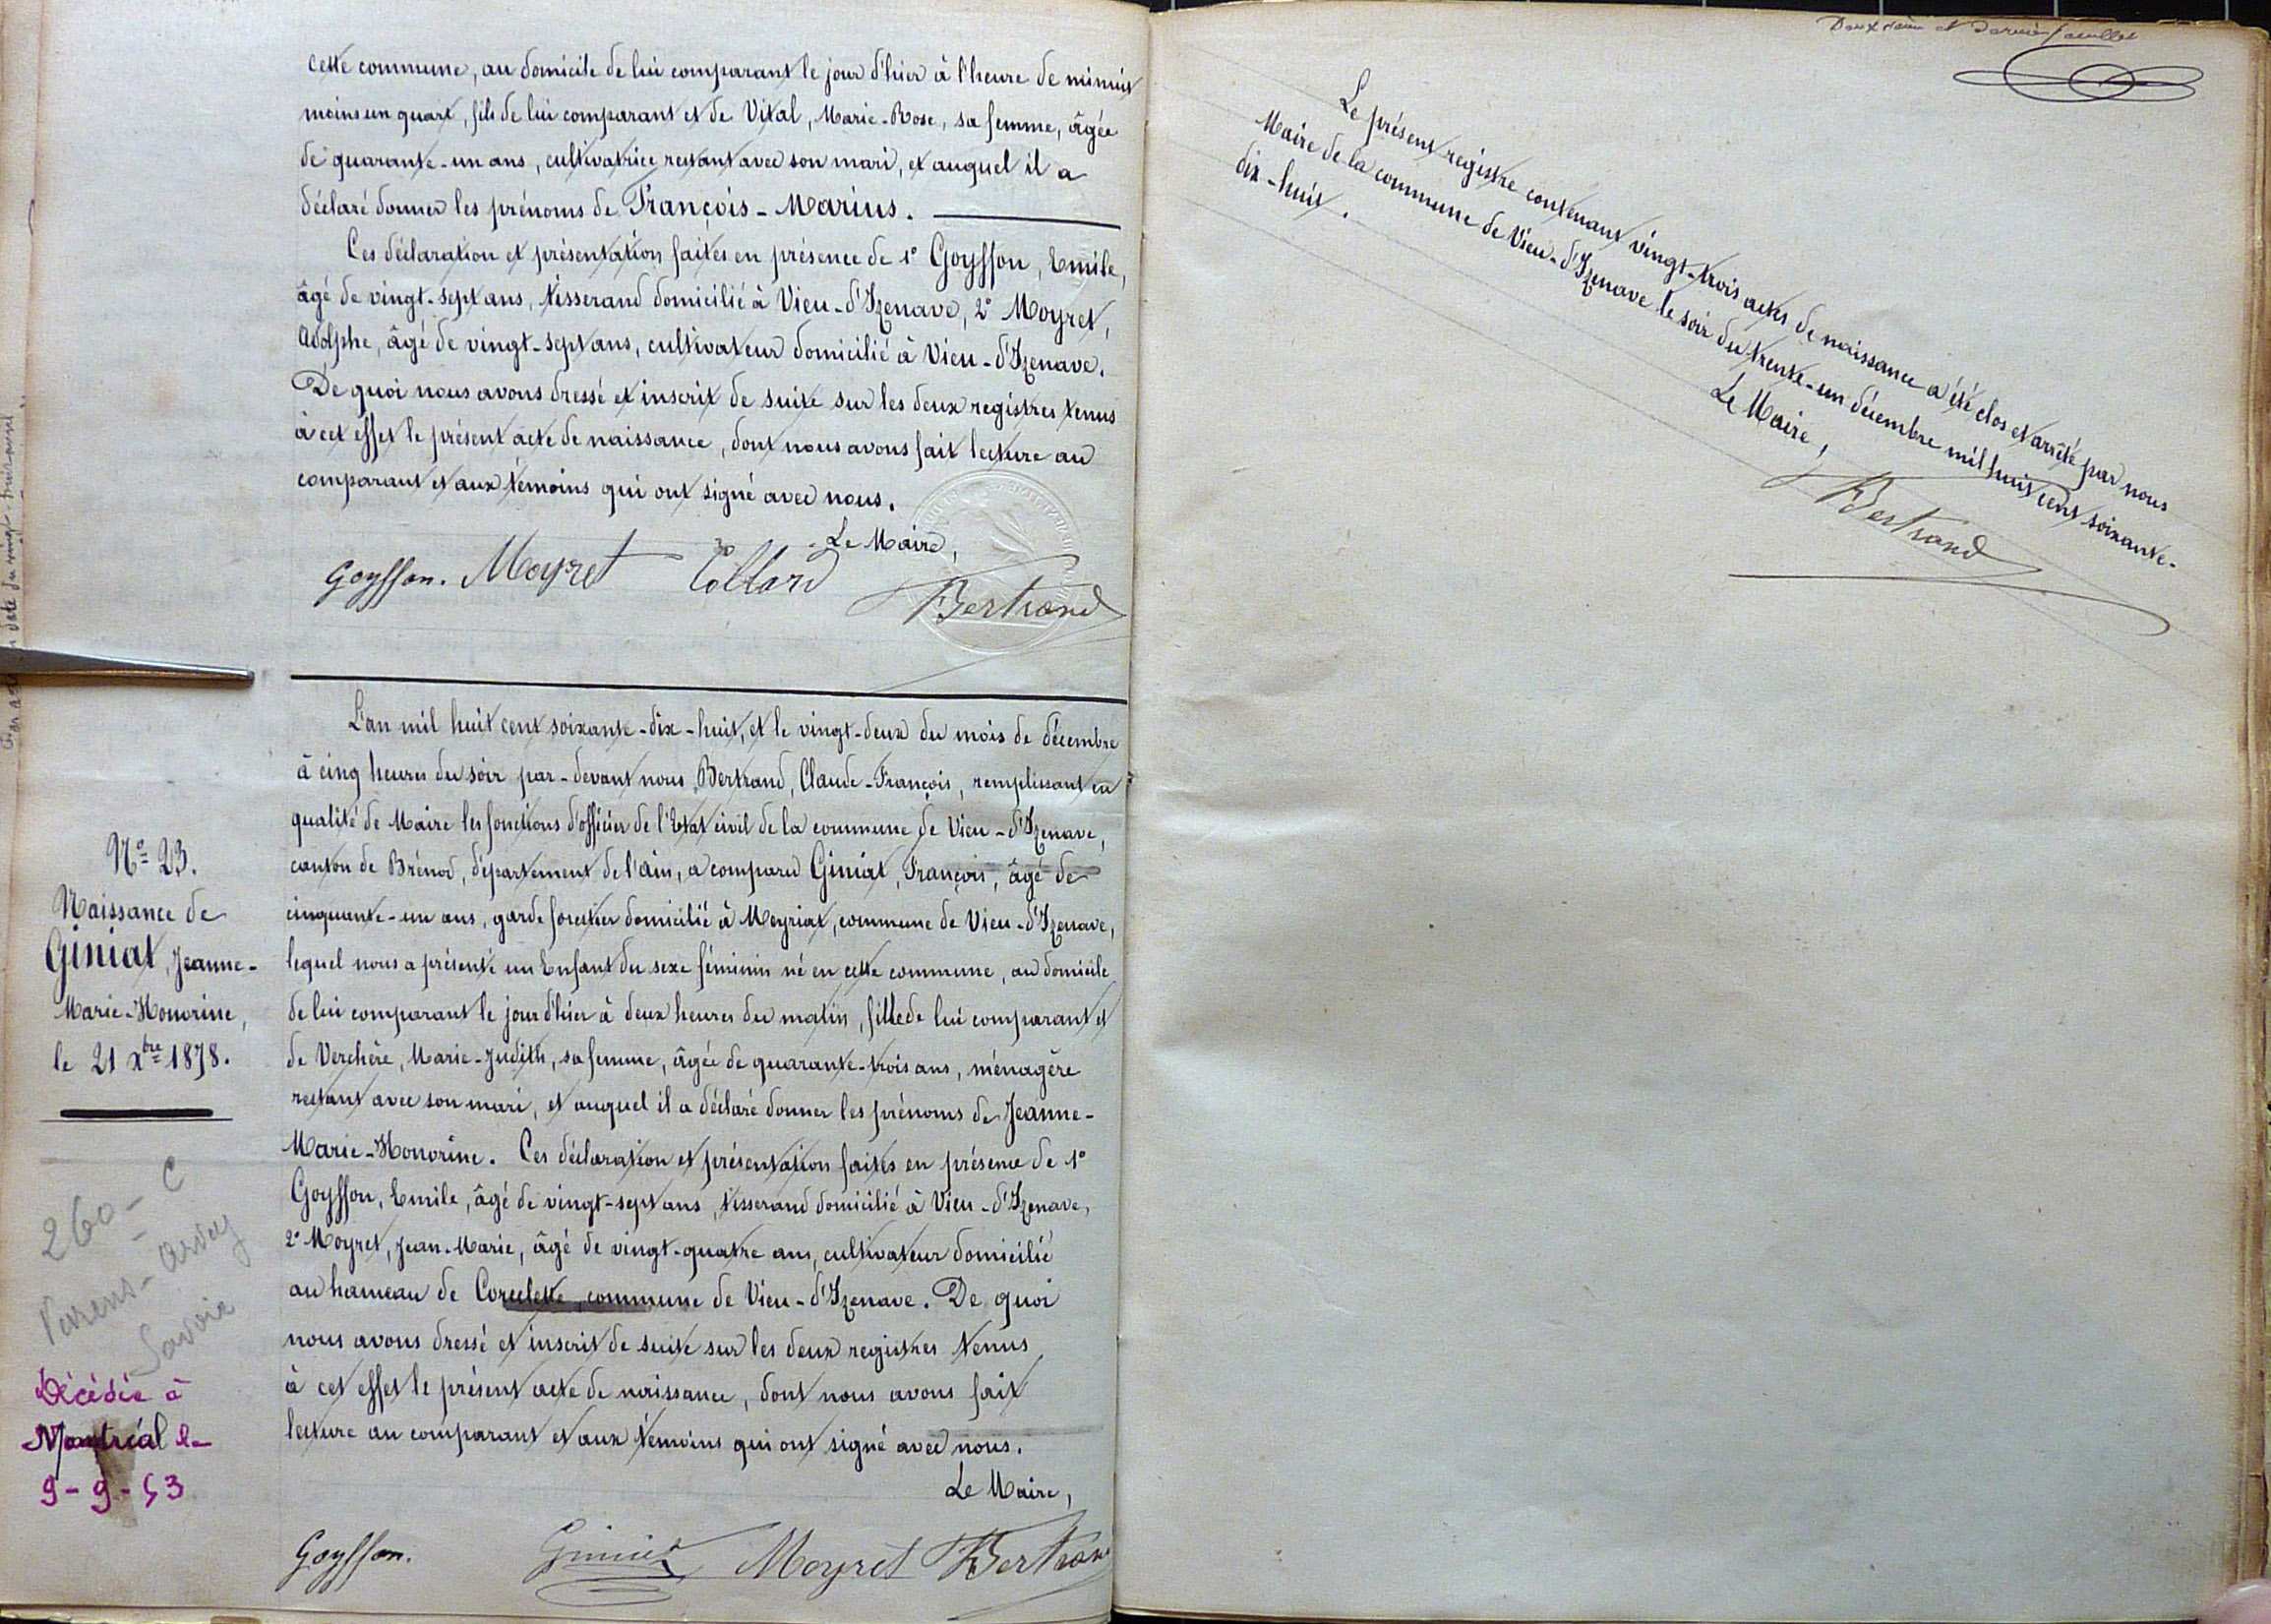 cette commune, au domicile de lui comparant le jour d'hier à l'heure de minuit
moins un quart, fils de lui comparant et de Vital, Marie-Rose, sa femme, âgée
de quarante-un ans, cultivatrice restant avec son mari, et auquel il a
déclaré donner les prénoms de François-Marius.
Ces déclaration et présentation faites en présence de 1° Goyffon, Emile,
âgé de vingt-sept ans, tisserand domicilié à Vieu-d'Izenave, 2° Moyret,
Adolphe, âgé de vingt-sept ans, cultivateur domicilié à Vieu-d'Izenave.
De quoi nous avons dressé et inscrit de suite sur les deux registres tenus
à cet effet le présent acte de naissance, dont nous avons fait lecture au
comparant et aux témoins qui ont signé avec nous.
Le Maire,
Goyffon. Moyret Collard Bertrand
N° 23.
Naissance de
Giniat, Jeanne-
Marie-Honorine,
le 21 xbre 1878.
260 - C
Savoie
Décédée à
Montréal le
9-9-53
L'an mil huit cent soixante-dix-huit, et le vingt-deux du mois de décembre
à cinq heures du soir par-devant nous Bertrand, Claude-François, remplissant en
qualité de Maire les fonctions d'officier de l'Etat civil de la commune de Vieu-d'Izenave,
canton de Brénod, département de l'ain, a comparu Giniat, François, âgé de
cinquante-un ans, garde forestier domicilié à Meyriat, commune de Vieu-d'Izenave,
lequel nous a présenté un Enfant du sexe féminin né en cette commune, au domicile
de lui comparant le jour d'hier à deux heures du matin, fille de lui comparant et
de Verchère, Marie-Judith, sa femme, âgée de quarante-trois ans, ménagère
restant avec son mari, et auquel il a déclaré donner les prénoms de Jeanne-
Marie-Honorine. Ces déclaration et présentation faites en présence de 1°
Goyffon, Emile, âgé de vingt-sept ans, tisserand domicilié à Vieu-d'Izenave,
2° Moyret, Jean-Marie, âgé de vingt-quatre ans, cultivateur domicilié
au hameau de Corcelette, commune de Vieu-d'Izenave. De quoi
nous avons dressé et inscrit de suite sur les deux registres tenus
à cet effet le présent acte de naissance, dont nous avons fait
lecture au comparant et aux témoins qui ont signé avec nous.
Le Maire,
Goyffon. Giniat Moyret Bertrand
Deuxième et dernier feuillet
Le présent registre contenant vingt-trois actes de naissance a été clos et arrêté par nous
Maire de la commune de Vieu-d'Izenave le soir du trente-un décembre mil huit cent soixante-
dix-huit.
Le Maire,
Bertrand